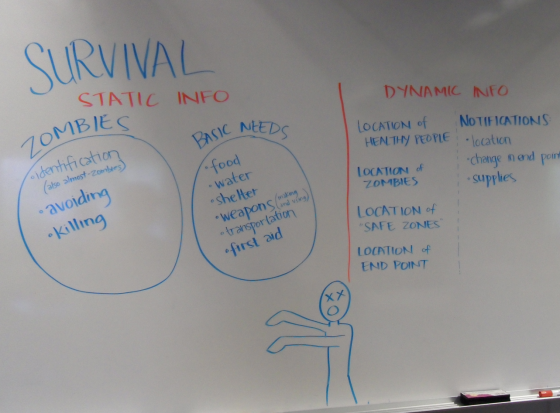 SURVIVAL
STATIC INFO
ZOMBIES
• identification
(also almost-zombies)
• avoiding
• killing
BASIC NEEDS
• food
• water
• shelter
• weapons (making
and using)
• transportation
• first aid
DYNAMIC INFO
LOCATION of
HEALTHY PEOPLE
LOCATION of
ZOMBIES
LOCATION of
'SAFE ZONES'
LOCATION of
END POINT
NOTIFICATIONS
• location
• change in end point
• supplies